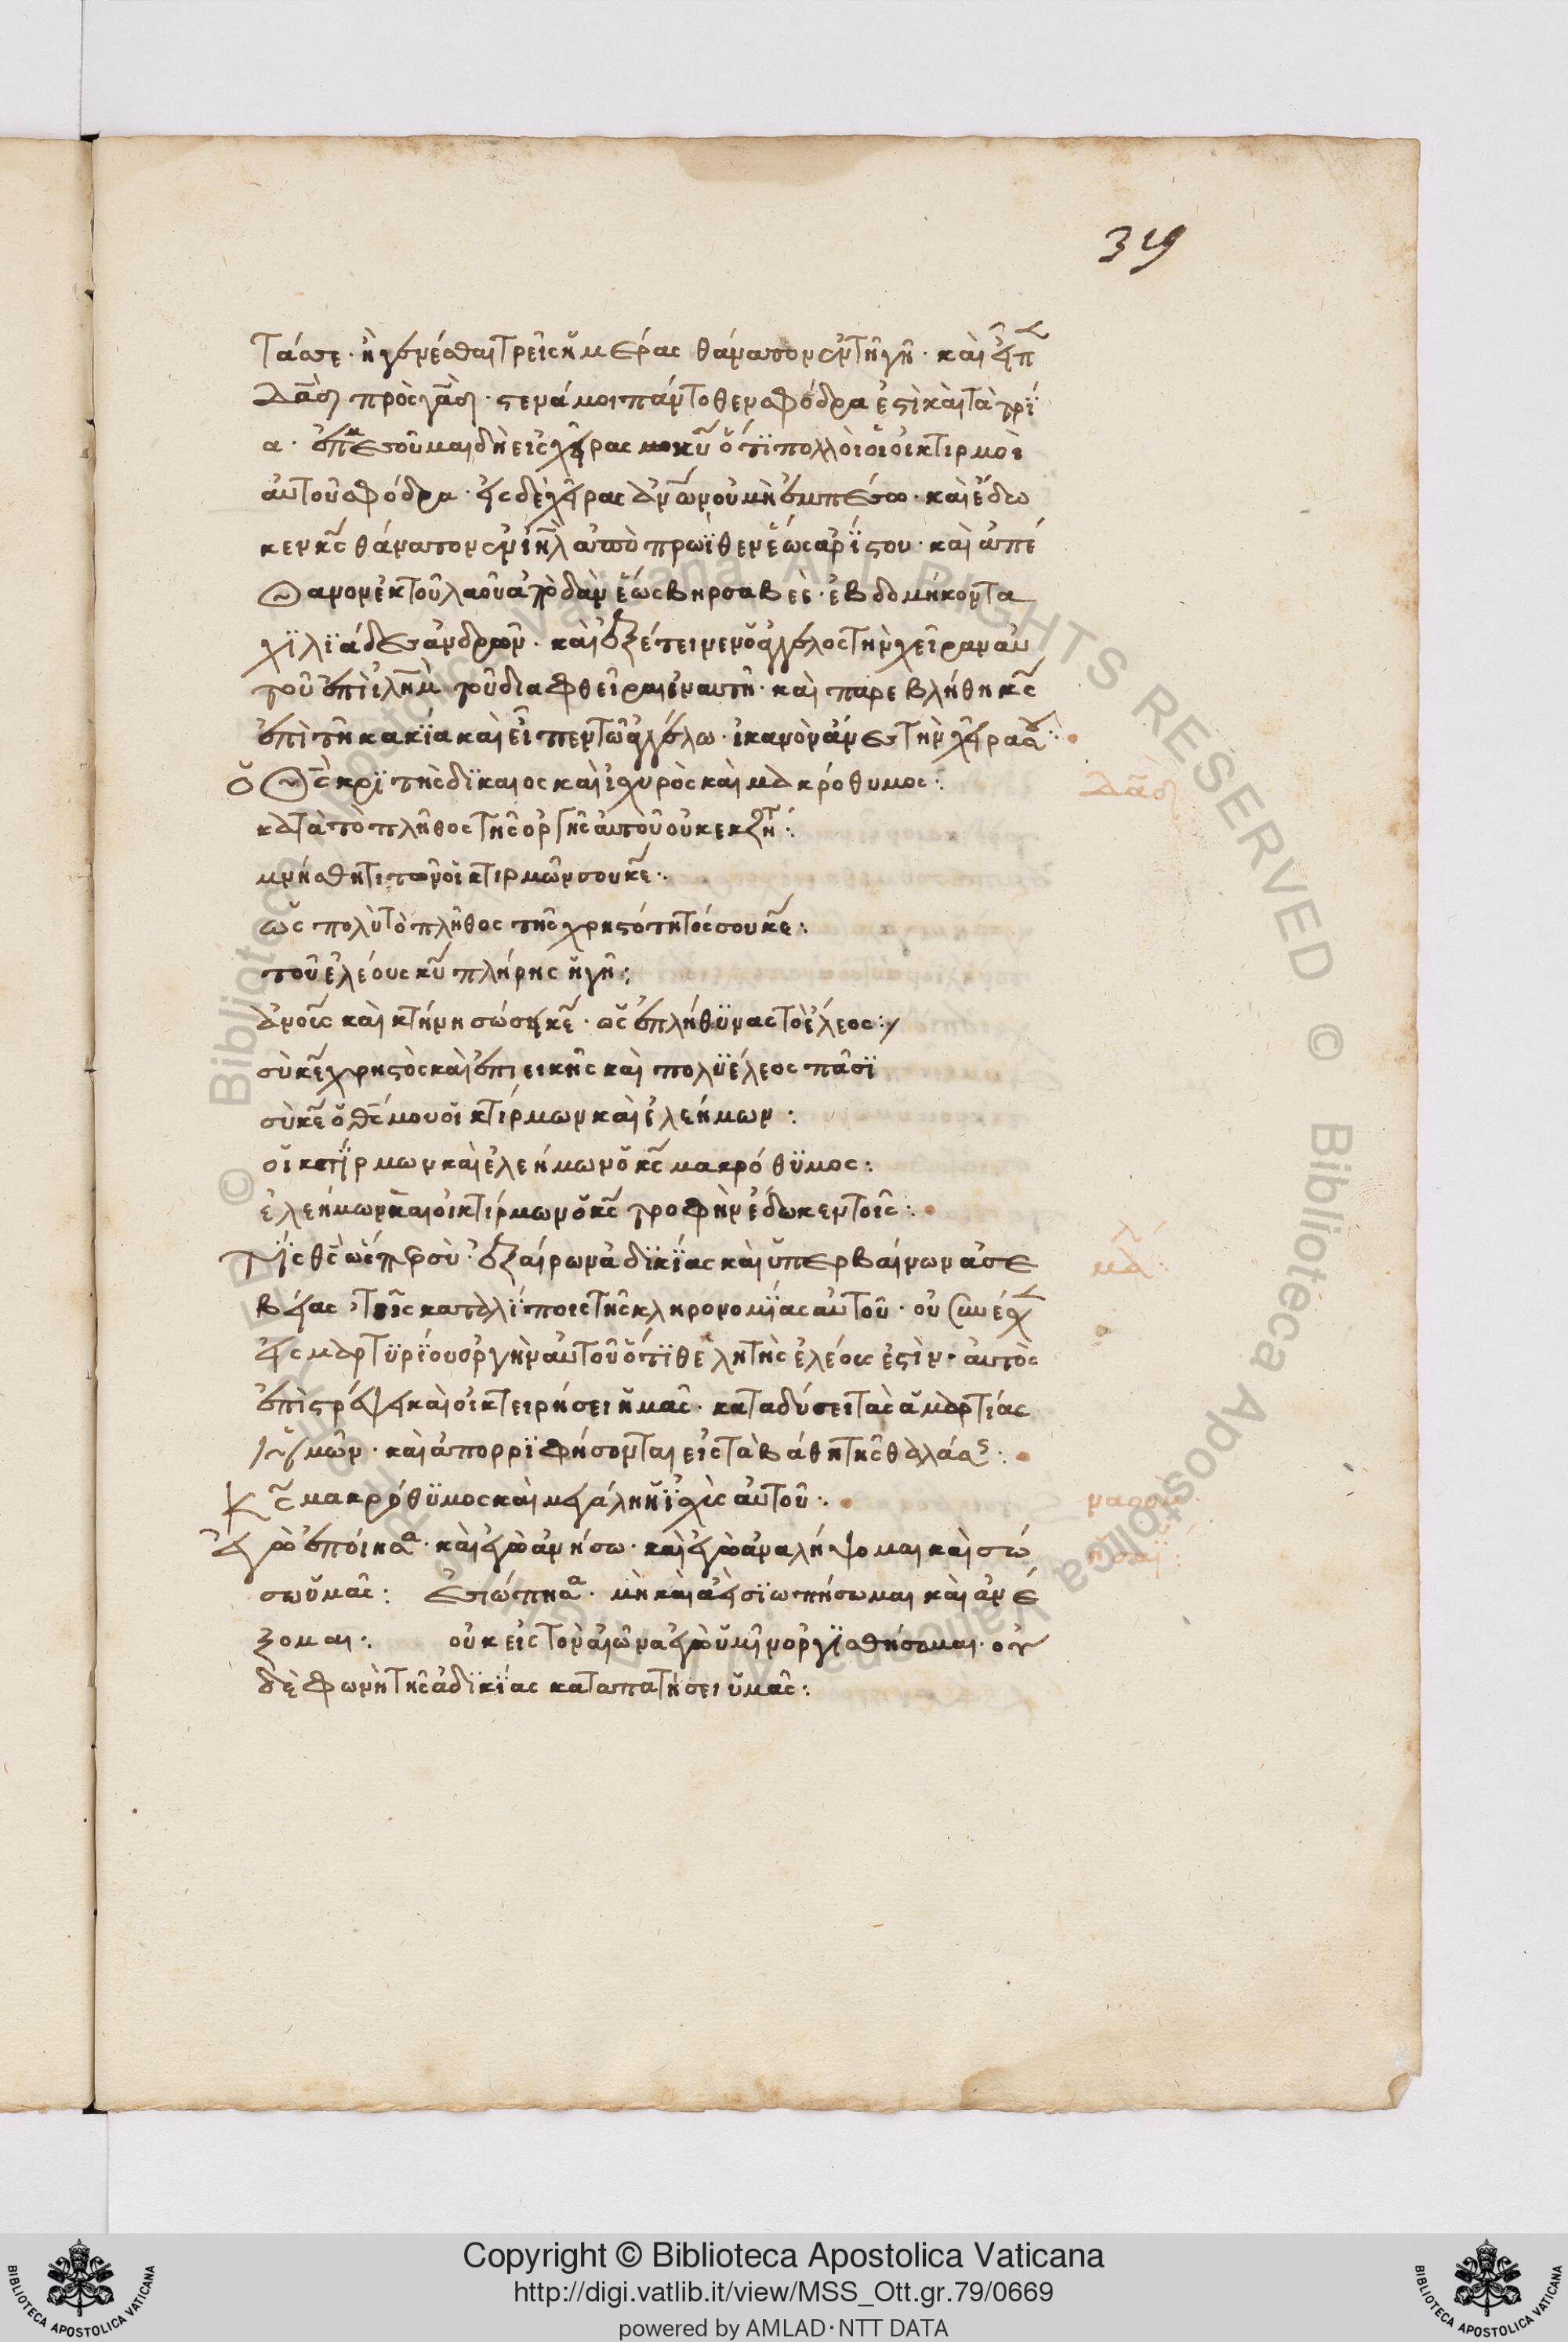 329
τάσσε· ἢ γενέσθαι τρεῖς ἡμέρας θάνατον ἐν τῇ γῇ· καὶ εἶπε
δᾶδ πρὸς γὰδ· στενά μοι πάντοθεν σφόδρα ἐστὶ καὶ τὰ τρί
α· ἐμπεσοῦμαι δὴ εἰς χεῖρας κυ ὅτι πολλοὶ οἱ οἰκτιρμοὶ
αὐτοῦ σφόδρα· εἰς δὲ χεῖρας ἀνων οὐ μὴ ἐμπέσω· καὶ ἔδω
κεν κς θάνατον ἐν ιηλ ἀπὸ πρωΐθεν ἕως ἀρίστου· καὶ ἀπέ
θανον ἐκ τοῦ λαοῦ ἀπὸ δὰν ἕως βηρσαβεὲ· ἑβδομήκοντα
χιλιάδες ἀνδρῶν· καὶ ἐξέτεινεν ὁ ἄγγελος τὴν χεῖραν αὐ
τοῦ ἐπὶ ιλημ τοῦ διαφθεῖραι ἐν αὐτῇ· καὶ παρεβλήθη κς
ἐπὶ τῇ κακία καὶ εἶπεν τῶ ἀγγέλω· ἱκανὸν ἄνες τὴν χεῖρα σου:
ὁ θς κριτὴς δίκαιος καὶ ἰσχυρὸς καὶ μακρόθυμος:
δᾶδ
κατὰ τὸ πλῆθος τῆς ὀργῆς αὐτοῦ οὐκ ἐκζητή:
μνήσθητι τῶν οἰκτιρμῶν σου κε:
ὡς πολὺ τὸ πλῆθος τῆς χρηστότητός σου κε:
τοῦ ἐλέους κυ πλήρης ἡ γῆ:
ἀνους καὶ κτήνη σώσεις κε· ὡς ἐπλήθυνας τὸ ἔλεος:
σὺ κε χρηστὸς καὶ ἐπιεικὴς καὶ πολυέλεος πᾶσϊ
σὺ κε ὁ θς μου οἰκτίρμων καὶ ἐλεήμων:
οἰκτίρμων καὶ ἐλεήμων ὁ κς μακρόθυμος:
ἐλεήμων καὶ οἰκτίρμων ὁ κς τροφὴν ἔδωκεν τοῖς:
Τίς θς ὥσπερ σὺ· ἐξαίρων ἀδικίας καὶ ὑπερβαίνων ἀσε
μιχ:
βείας· τοῖς καταλίποις τῆς κληρονομίας αὐτοῦ· οὐ συνέσχεν
εἰς μαρτύριον ὀργὴν αὐτοῦ ὅτι θελητὴς ἐλέους ἐστὶν· αὐτὸς
ἐπιστρέψει καὶ οἰκτειρήσει ἡμᾶς· καταδύσει τὰς ἁμαρτίας
ἡμῶν· καὶ ἀπορριφήσονται εἰς τὰ βάθη τῆς θαλάσσης:
Κς μακρόθυμος καὶ μεγάλη ἡ ἰσχὺς αὐτοῦ:
ναούμ·
ἐγὼ ἐποίησα· καὶ ἐγὼ ἀνήσω· καὶ ἐγὼ ἀναλήψομαι καὶ σώ
ησαΐ:
σω ὑμᾶς: ἐσιώπησα· μὴ καὶ ἀεὶ σιωπήσωμαι καὶ ἀνέ
ξομαι: οὐκ εἰς τὸν αἰῶνα ἐγὼ ὑμῖν ὀργισθήσομαι· οὐ
δὲ φωνὴ τῆς ἀδικίας καταπατήσει ὑμᾶς:
Copyright © Biblioteca Apostolica Vaticana
http://digi.vatlib.it/view/MSS_Ott.gr.79/0669
powered by AMLAD·NTT DATA